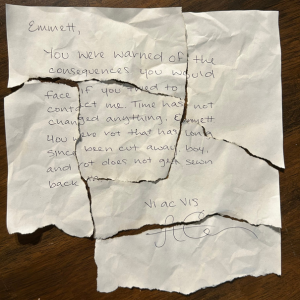 Emmett,
You were warned of the
consequences you would
face if you tried to
contact me. Time has not
changed anything. Emmett
you were rot that has long
since been cut away boy,
and rot does not get sewn
back
Vi ac Vis